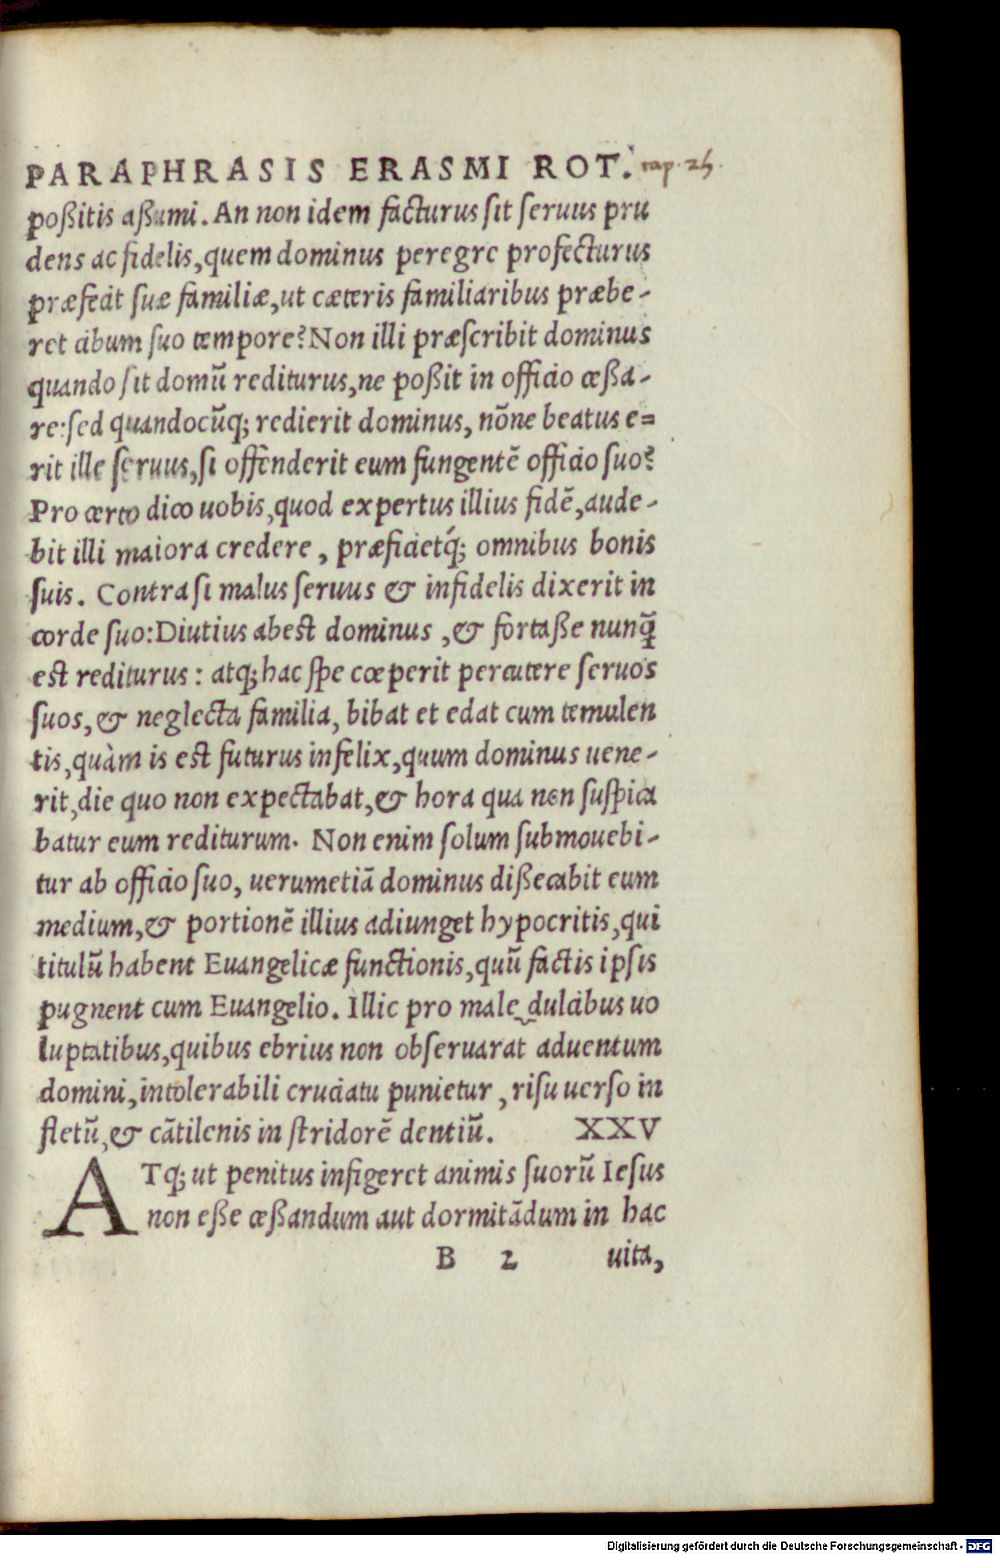 PARAPHRASIS ERASMI ROT. cap. 25.
poßitis aßumi. An non idem facturus sit seruus pru
dens ac fidelis, quem dominus peregre profecturus
præfecit suæ familiæ, ut cæteris familiaribus præbe-
ret cibum suo tempore? Non illi præscribit dominus
quando sit domũ rediturus, ne poßit in officio ceßa-
re: sed quandocũq; redierit dominus, nõne beatus e=
rit ille seruus, si offenderit eum fungentẽ officio suo?
Pro certo dico uobis, quod expertus illius fidẽ, aude-
bit illi maiora credere, præficietq́; omnibus bonis
suis. Contra si malus seruus & infidelis dixerit in
corde suo: Diutius abest dominus, & fortaße nunq̃
est rediturus: atq; hac spe cœperit percutere seruos
suos, & neglecta familia, bibat et edat cum temulen
tis, quàm is est futurus infelix, quum dominus uene-
rit, die quo non expectabat, & hora qua non suspica
batur eum rediturum. Non enim solum submouebi-
tur ab officio suo, uerumetiã dominus dißecabit eum
medium, & portionẽ illius adiunget hypocritis, qui
titulũ habent Euangelicæ functionis, quũ factis ipsis
pugnent cum Euangelio. Illic pro male dulcibus uo
luptatibus, quibus ebrius non obseruarat aduentum
domini, intolerabili cruciatu punietur, risu uerso in
fletũ, & cãtilenis in stridorẽ dentiũ. XXV
ATq; ut penitus infigeret animis suorũ Iesus
non eße ceßandum aut dormitãdum in hac
B 2 uita,
Digitalisierung gefördert durch die Deutsche Forschungsgemeinschaft - DFG